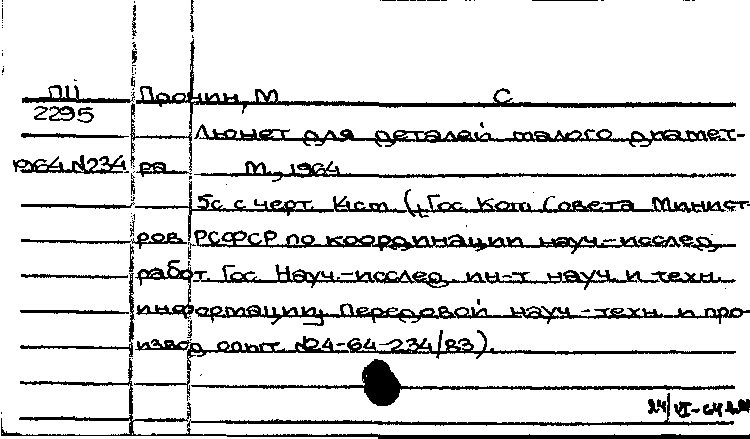 ПII Пронин, М С
2295
Люнет для деталей малого диамет-
1964 №234 ра М., 1964
5с с черт 14см (Гос Ком Совета Минист-
ров РСФСР по координации науч.-исслед.
работ. Гос Науч.-исслед. ин-т науч. и техн.
информации. Передовой науч.-техн. и про-
извод. опыт. №24-64-234/83).
24/VI-64